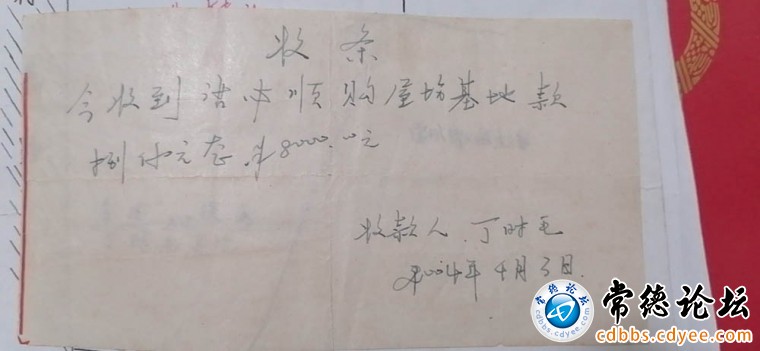 收条
今收到 顺购屋场基地款
捌仟元整 ¥8000.00元
收款人. 丁时毛
2004年4月3日.
常德论坛
常德论坛
cdbbs.cdyee.com